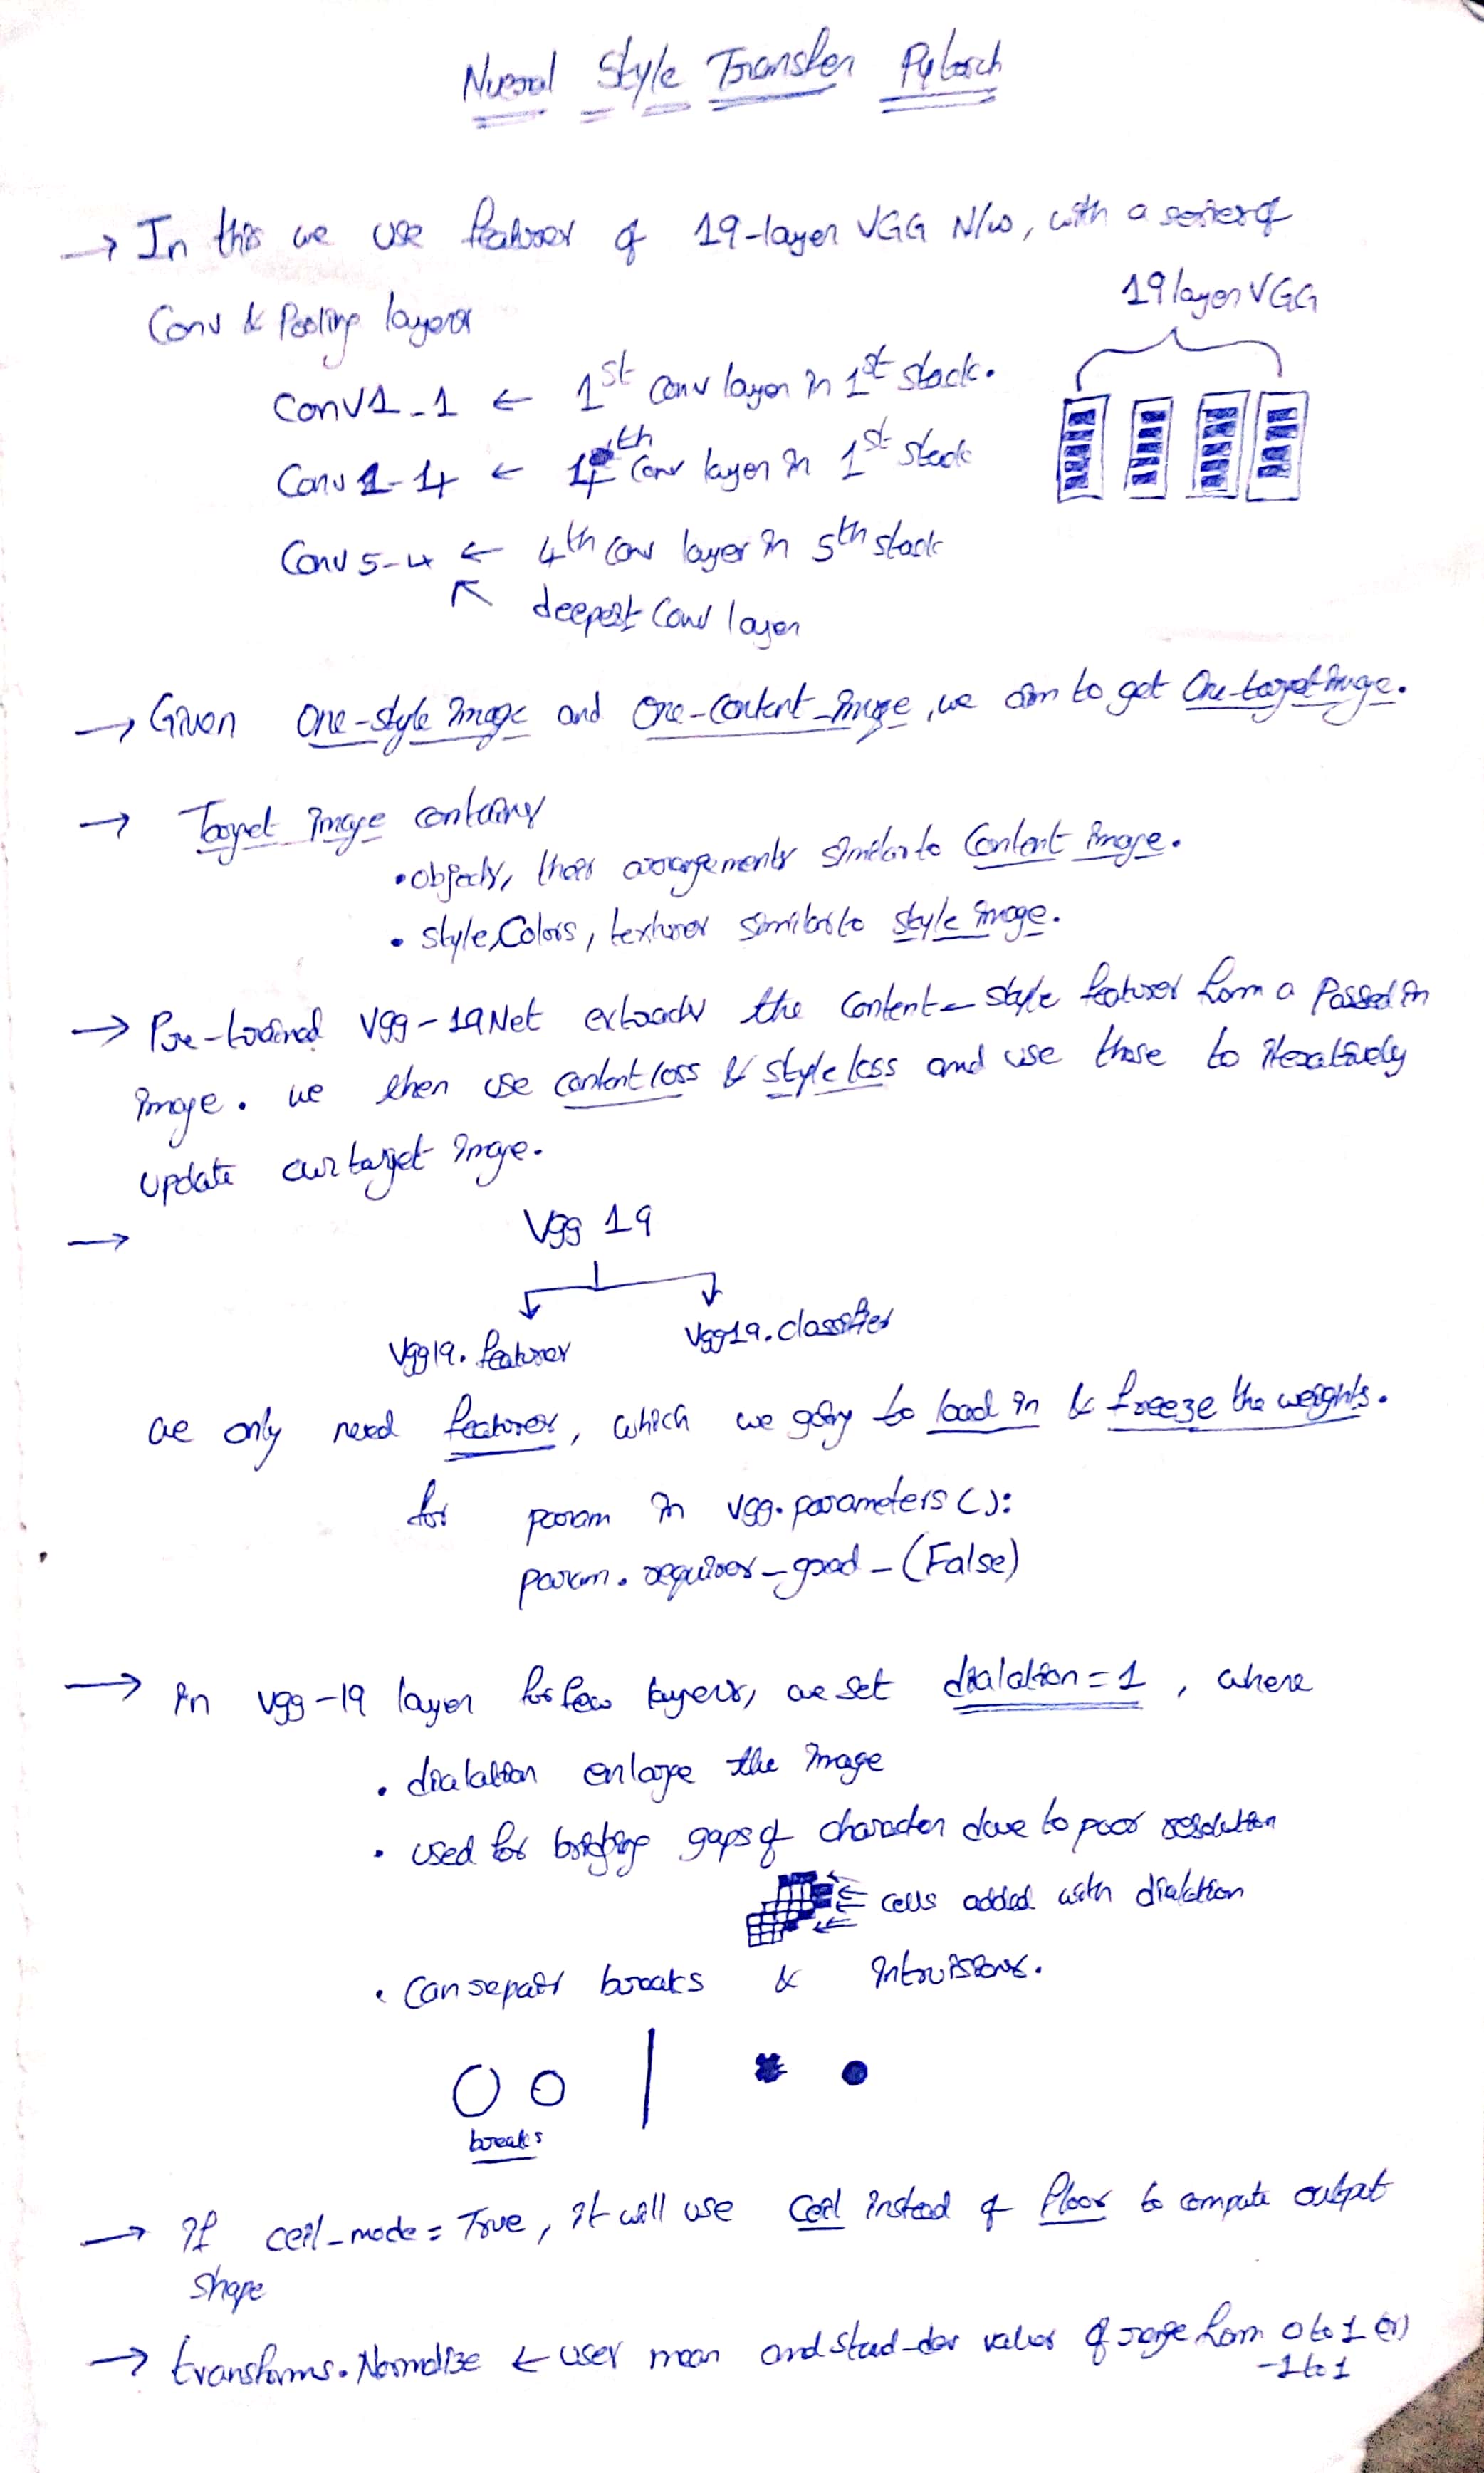 Nueral Style Transfer Pytorch
→ In this we use features of 19-layer VGG N/w, with a series of
19 layer VGG
Conv & Pooling layers
Conv1-1 ← 1st conv layer in 1st stack.
Conv1-4 ← 4th Conv layer in 1st stack
Conv5-4 ← 4th conv layer in 5th stack
deepest Conv layer
→ Given One-style image and One-content-image, we aim to get One-target image.
→ Target image contains
• objects, their arrangements similar to Content image.
• style, Colors, textures similar to style image.
→ Pre-trained Vgg-19 Net extracts the content - style features from a passed in
image. we then use content loss & style loss and use those to iteratively
update our target image.
→ Vgg 19
Vgg19.features Vgg19.classifier
we only need features, which we going to load in & freeze the weights.
for param in vgg.parameters():
param.requires_grad_(False)
→ In vgg-19 layer for few layers, we set dialation = 1, where
• dialation enlarge the image
• used for bridging gaps of character due to poor resolution
← cells added with dialation
• Can repair breaks & intruisions.
breaks
→ If ceil_mode = True, it will use Ceil instead of Floor to compute output
shape
→ transforms.Normalize ← uses mean and stad-dev values of range from 0 to 1 (or)
-1 to 1